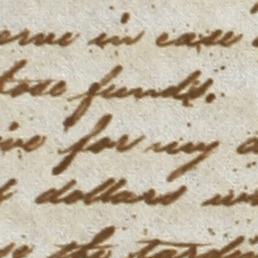 erve in case
those funds.
ive for my
dollars
the tardi